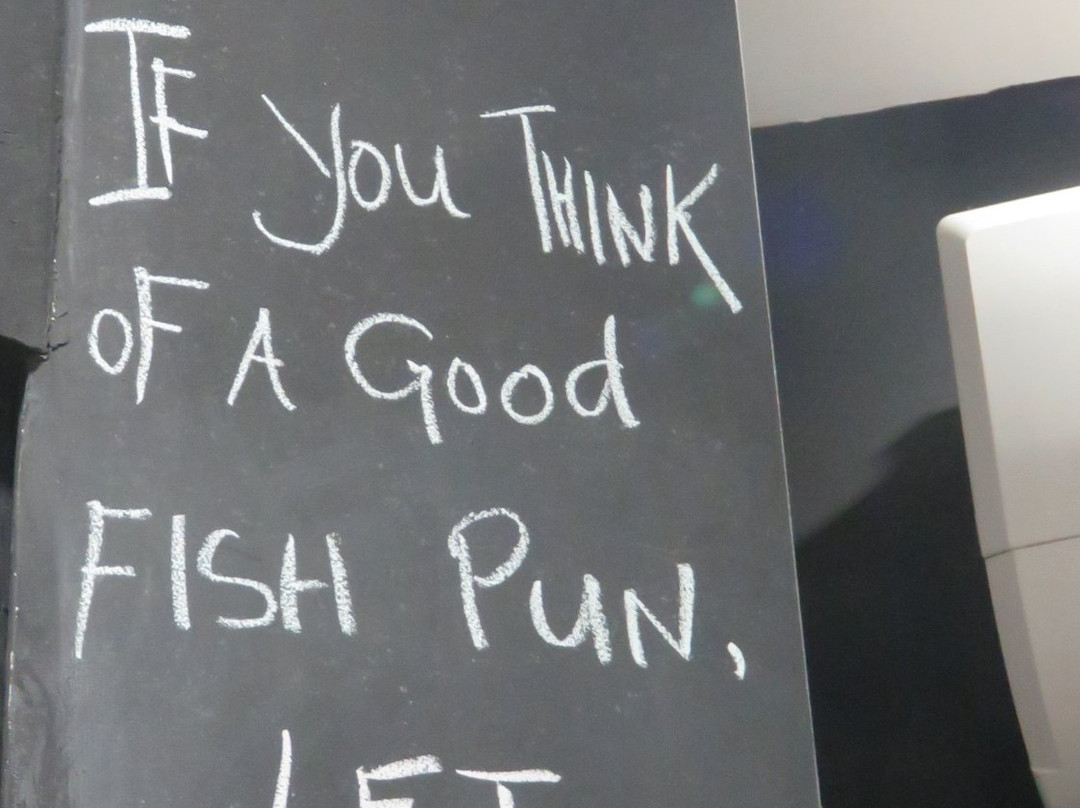 IF you THINK
oF A Good
FISH PUN,
LET